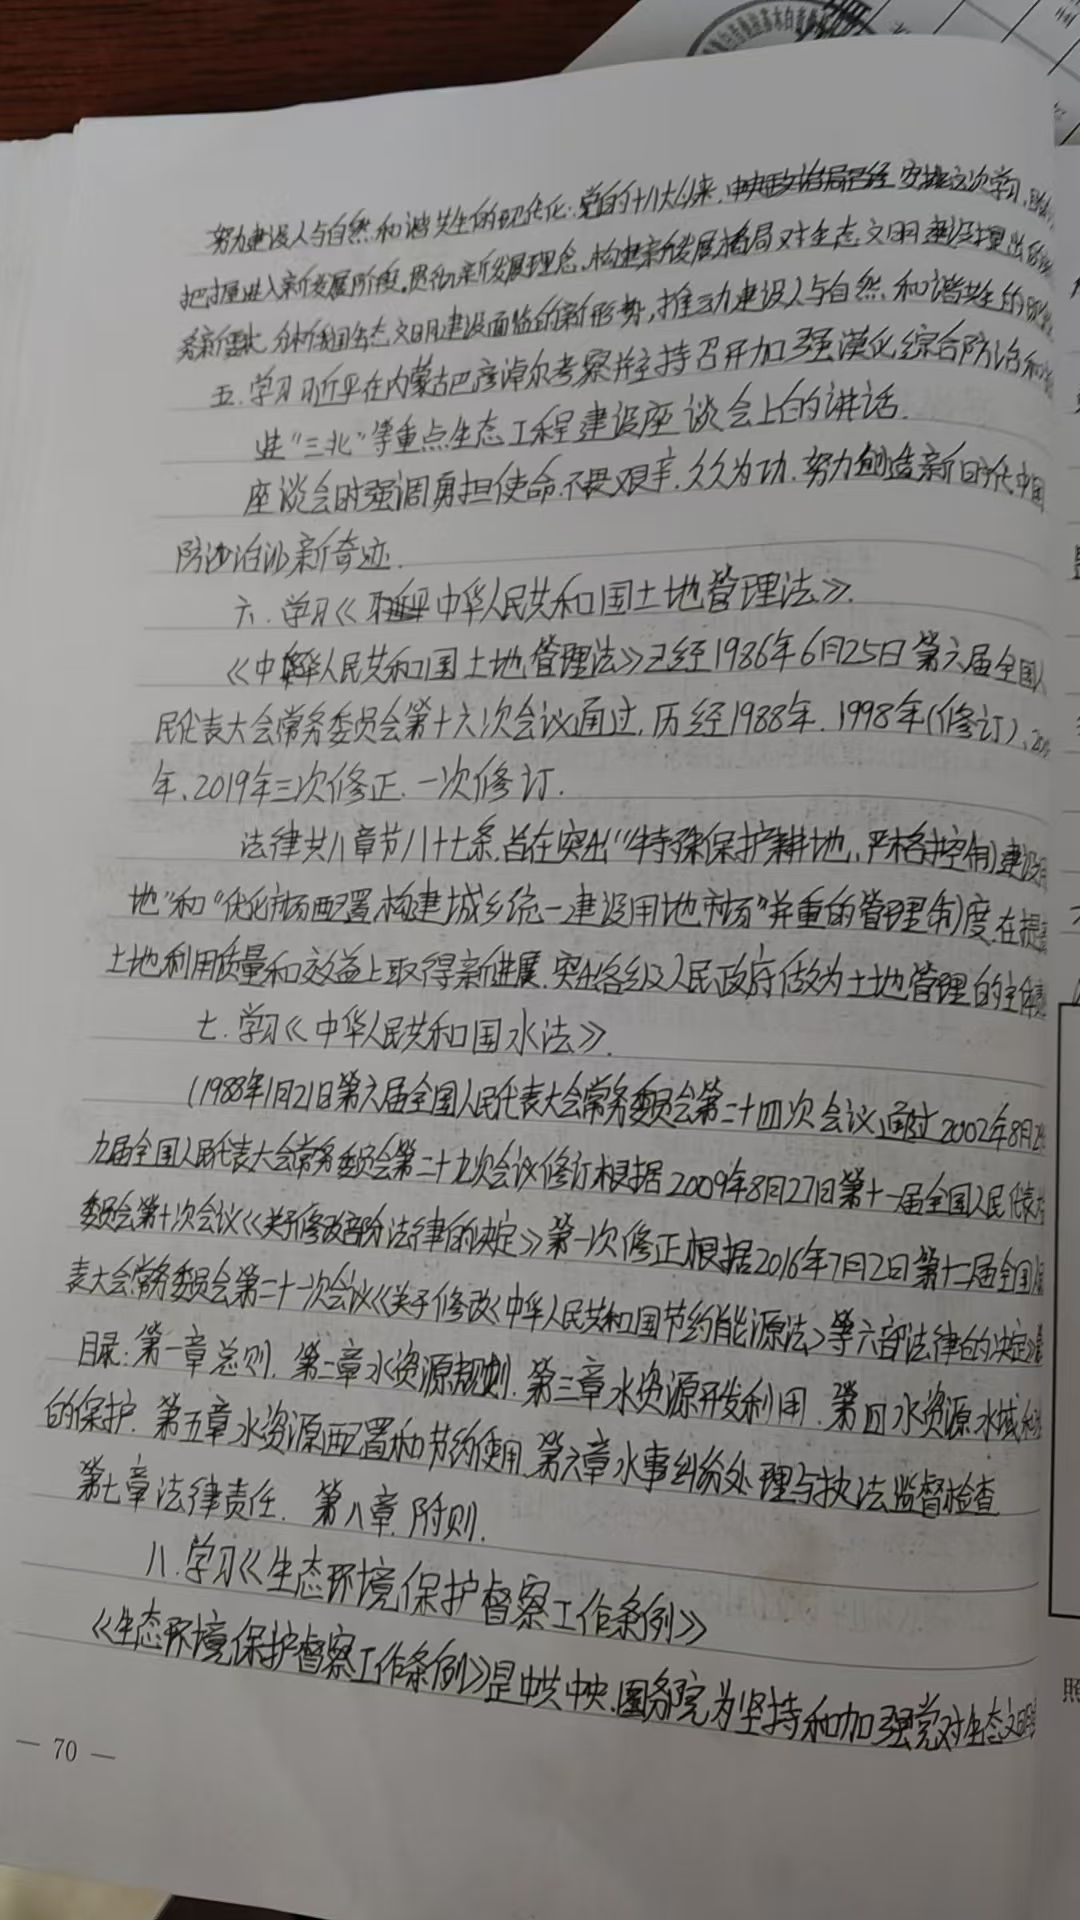 努力建设人与自然和谐共生的现代化:党的十八大以来,中央政治局已经安排这次学习,
把握进入新发展阶段,贯彻新发展理念,构建新发展格局对生态文明建设提出的
务新要求,分析我国生态文明建设面临的新形势,推动建设人与自然和谐共生的现
五.学习习近平在内蒙古巴彦淖尔考察并主持召开加强漠化综合防治和
进"三北"等重点生态工程建设座谈会上的讲话.
座谈会时强调勇担使命.不畏艰辛.久久为功.努力创造新时代中国
防沙治沙新奇迹.
六.学习《中华人民共和国土地管理法》.
《中华人民共和国土地管理法》已经1986年6月25日第六届全国人
民代表大会常务委员会第十六次会议通过,历经1988年.1998年(修订)、
年、2019年三次修正.一次修订.
法律共八章节八十七条,旨在突出"特殊保护耕地,严格控制建设用
地"和"优化市场配置,构建城乡统一建设用地市场"并重的管理制度,在提高
土地利用质量和效益上取得新进展.突出各级人民政府做为土地管理的主体责
七.学习《中华人民共和国水法》.
(1988年1月21日第六届全国人民代表大会常务委员会第二十四次会议通过 2002年8月
九届全国人民代表大会常务委员会第二十九次会议修订根据2009年8月27日第十一届全国人民代表大
委员会第十次会议《关于修改部分法律的决定》第一次修正根据2016年7月2日第十二届全国人民
表大会常务委员会第二十一次会议《关于修改《中华人民共和国节约能源法》等六部法律的决定》
目录:第一章总则.第二章水资源规划.第三章水资源开发利用.第四水资源水域和
的保护.第五章水资源配置和节约使用.第六章水事纠纷处理与执法监督检查
第七章法律责任. 第八章.附则.
八.学习《生态环境保护督察工作条例》
《生态环境保护督察工作条例》是中共中央.国务院为坚持和加强党对生态文明
— 70 —